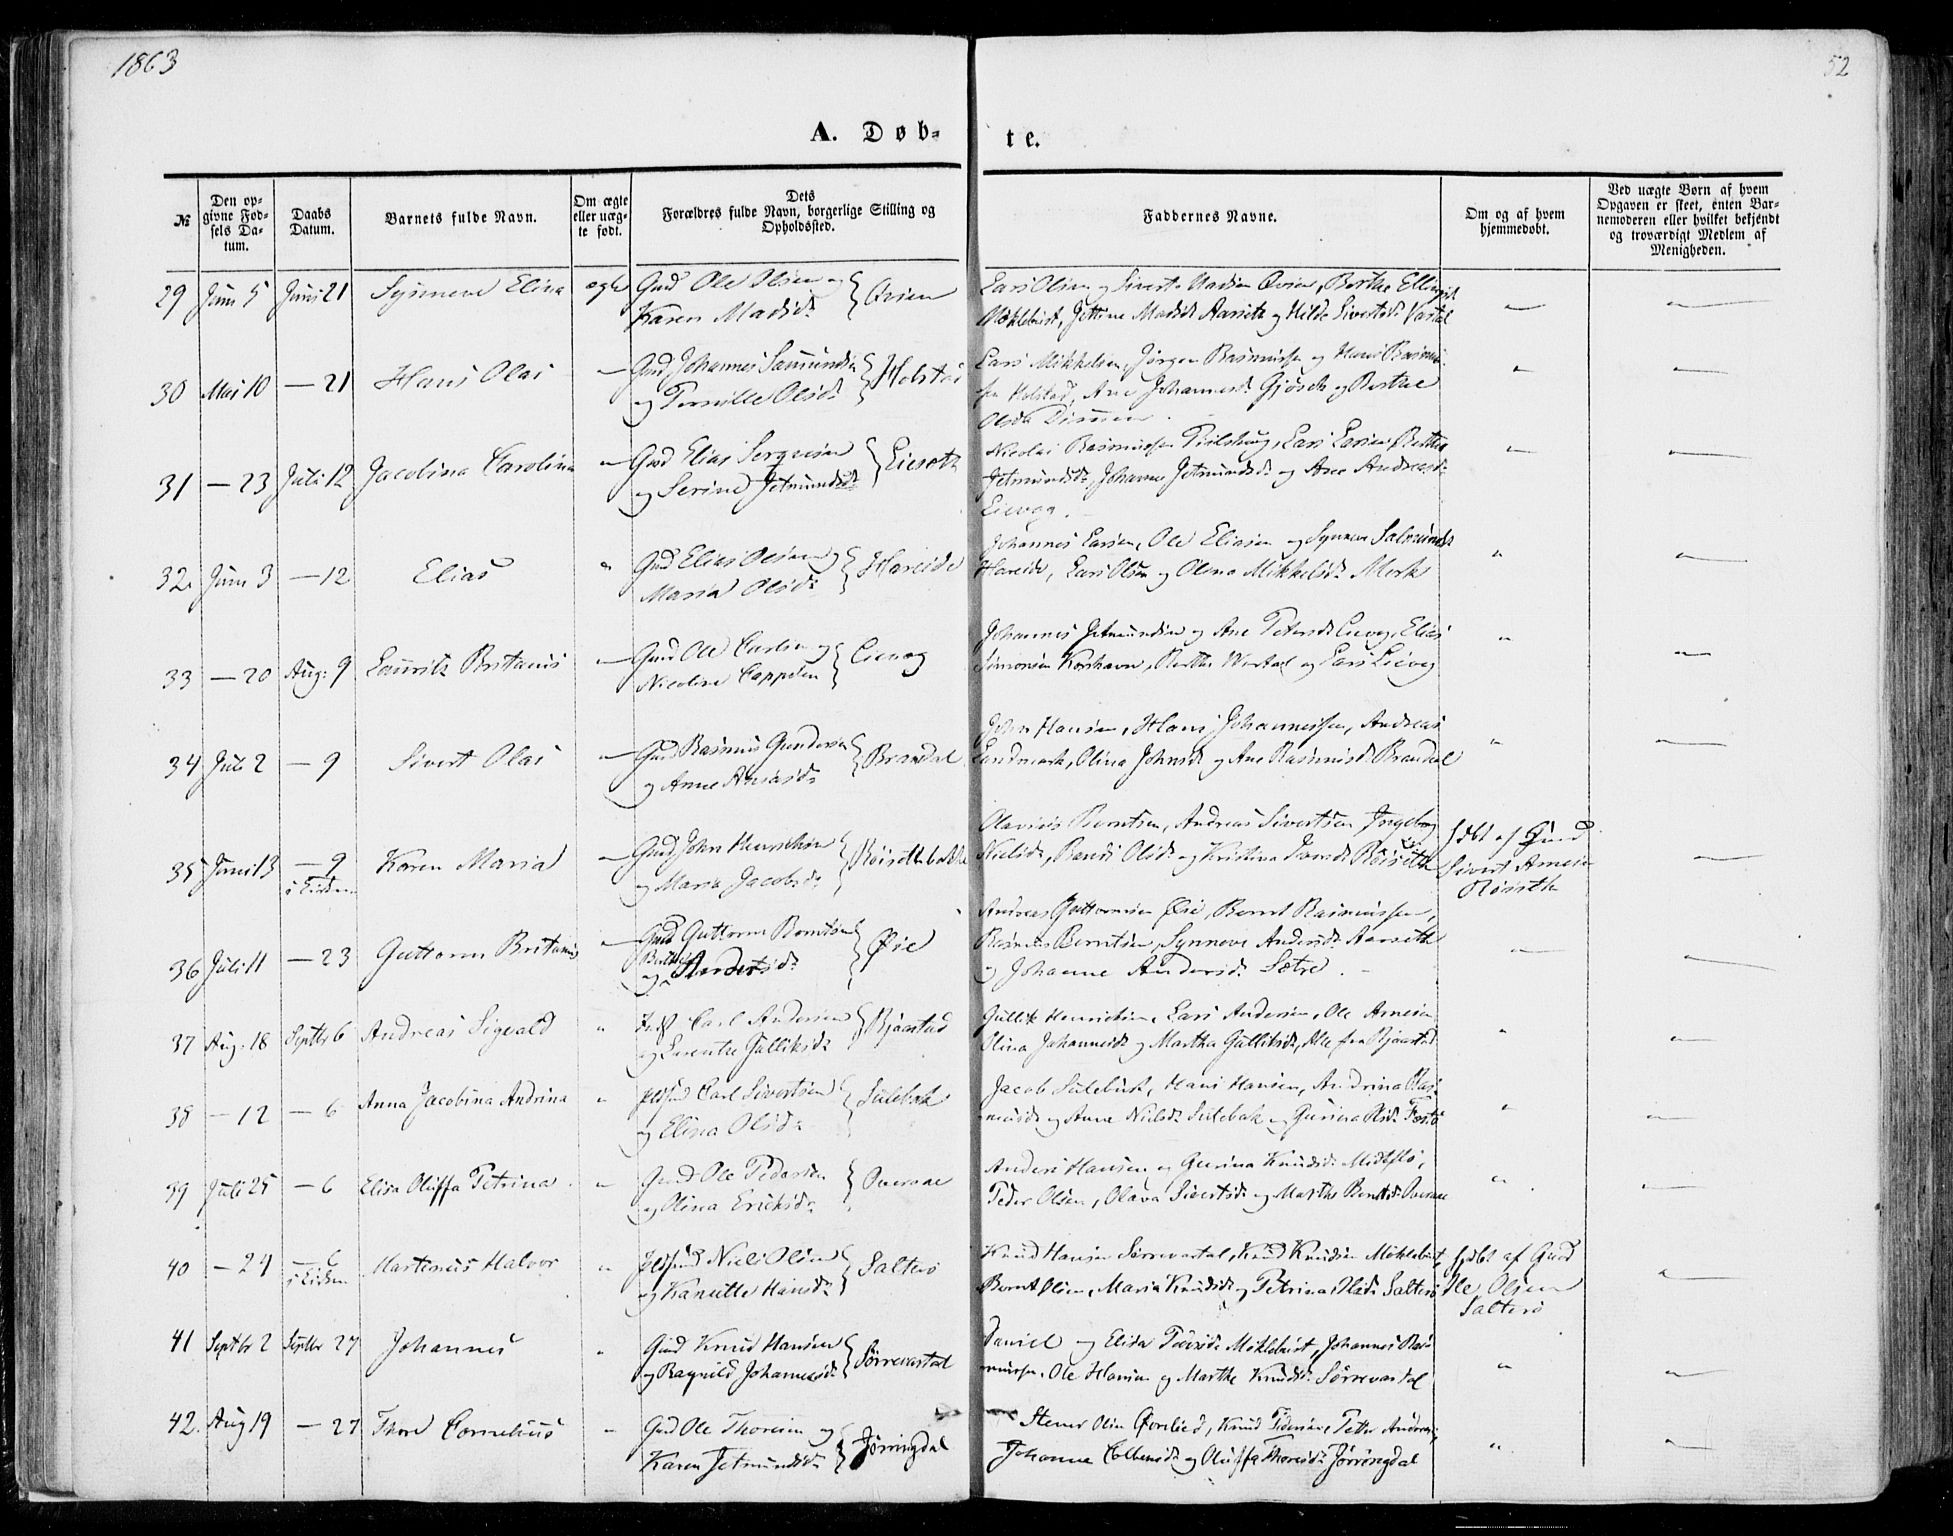 1863
52
A. Døb-
te.
№
Den opgivne Fødsels Datum.
Daabs Datum.
Barnets fulde Navn.
Om ægte eller uægte født.
Dets Forældres fulde Navn, borgerlige Stilling og Opholdssted.
Faddernes Navne.
Om og af hvem hjemmedøbt.
Ved uægte Børn af hvem Opgaven er skeet, enten Barnemoderen eller hvilket bekjendt og troværdigt Medlem af Menigheden.
29 Juni 5 Juni 21 Synneve Elina ægte Gmd Ole Olsen og
Karen Madsd: Qvien
Lars Olsen og Sivert Madsen Qvien, Berthe
Møklebust, Jettine Madsd: Aarseth og Hilde Sivertsd:
30 Mai 10 — 21 Hans Olai — Gmd Johannes Samundsen
og Pernille Olsd: Holstad
Lars Mikkelsen, Jørgen Rasmussen og Hans
Holstad, Ane Johannesd: Gjøsdr og Berthe
Olsdr
31 — 23 Juli 12 Jacobina Carolina — Gmd Elias
og Serine Jetmundsd: Liesæth
Nicolai Rasmussen, Lars Larsen, Berthe
Jetmundsd:, Johannes Jetmundsd: og Ane Andreasd:
Lievog.
32. Juni 3 — 12 Elias " Gmd Elias Olsen og
Maria Olsd: Hareide
Johannes Larsen, Ole Eliasen og Synneve
Hareide, Lars Olsen og Olina Mikkelsd: Mork
33 — 20 Aug: 9 Lauritz Britanus — Gmd Ole Carlsen og
Nicoline Cappelen Lievog
Johannes Jetmundsen og Ane Petersd: Lievog, Elias
Simonsen Korshavn, Berthe og Lars Lievog
34 Juli 2 — 9 Sivert Olai — Gmd Rasmus Gundersen
og Anne Ananiasd: Brandal
John Hansen, Hans Johannessen, Andreas
Landmark, Olina Johnsd: og Ane Rasmusd: Brandal
35 Juni 13 — 9 Karen Maria — Gmd John Henrichsen
i Kirken og Maria Jacobsd: Røisethbakke
Olavius Berntsen, Andreas Sivertsen, Ingeborg
Nielsd:, Randi Olsd: og Kristina Røiseth
hdbt af Gmd
Sivert Arnesen
Røiseth
36 Juli 11 — 23 Guttorm Britanus — Gmd Guttorm Berntsen
og Berthe Andersd: Øie
Andreas Guttormsen Øie, Bernt Rasmussen,
Rasmus Berntsen, Synneve Andersd: Aarseth
og Johanne Andersd: Sætre.
37 Aug. 18 Septbr 6 Andreas Sigvald " Carl Andersen
og Laurentze Gulliksd: Bjaastad
Gullik Henrichsen, Lars Andersen, Ole Arnesen
Olina Johannesd: og Martha Gulliksd:, Alle fra Bjaastad
38 — 12 — 6 Anna Jacobina Andrina " Carl Sivertsen
og Elina Olsd: Sulebak
Jacob Sulebak, Hans Hansen, Andrina Ras-
musd: og Anne Nielsd: Sulebak og Gurina Olsd:
39 Juli 25 — 6 Elisa Oluffa Petrina — Gmd Ole Pedersen
og Olina Ericksd: Overaae
Anders Hansen og Gurina Knudsd:
Peder Olsen, Olava Sivertsd: og Marthe Berntsd: Overaae
40 — 24 — 6 Martinus Halvor " Niels Olsen
i Kirken og Kanutte Hansd: Salterø
Knud Hansen Sørrevartal, Knud Knudsen Møklebust,
Bernt Olsen, Maria Knudsd: og Petrina Olsd: Salterø
hjdbt af Gmd
Ole Olsen
Salterø
41 Septbr 2 Septbr 27 Johannes " Gmd Knud Hansen
og Ragnild Johannesd: Sørrevartal
Daniel og Elisa Pedersd: Møklebust, Johannes Ras-
mussen, Ole Hansen og Marthe Knudsd: Sørrevartal
42. Aug 19 — 27 Thore Cornelius " Gmd Ole Thoresen og
Karen Jetmundsd: Jørringdal
Stener Olsen, Knud Pedersen, Petter Andersen,
Johanne og Oluffa Thoresd: Jørringdal